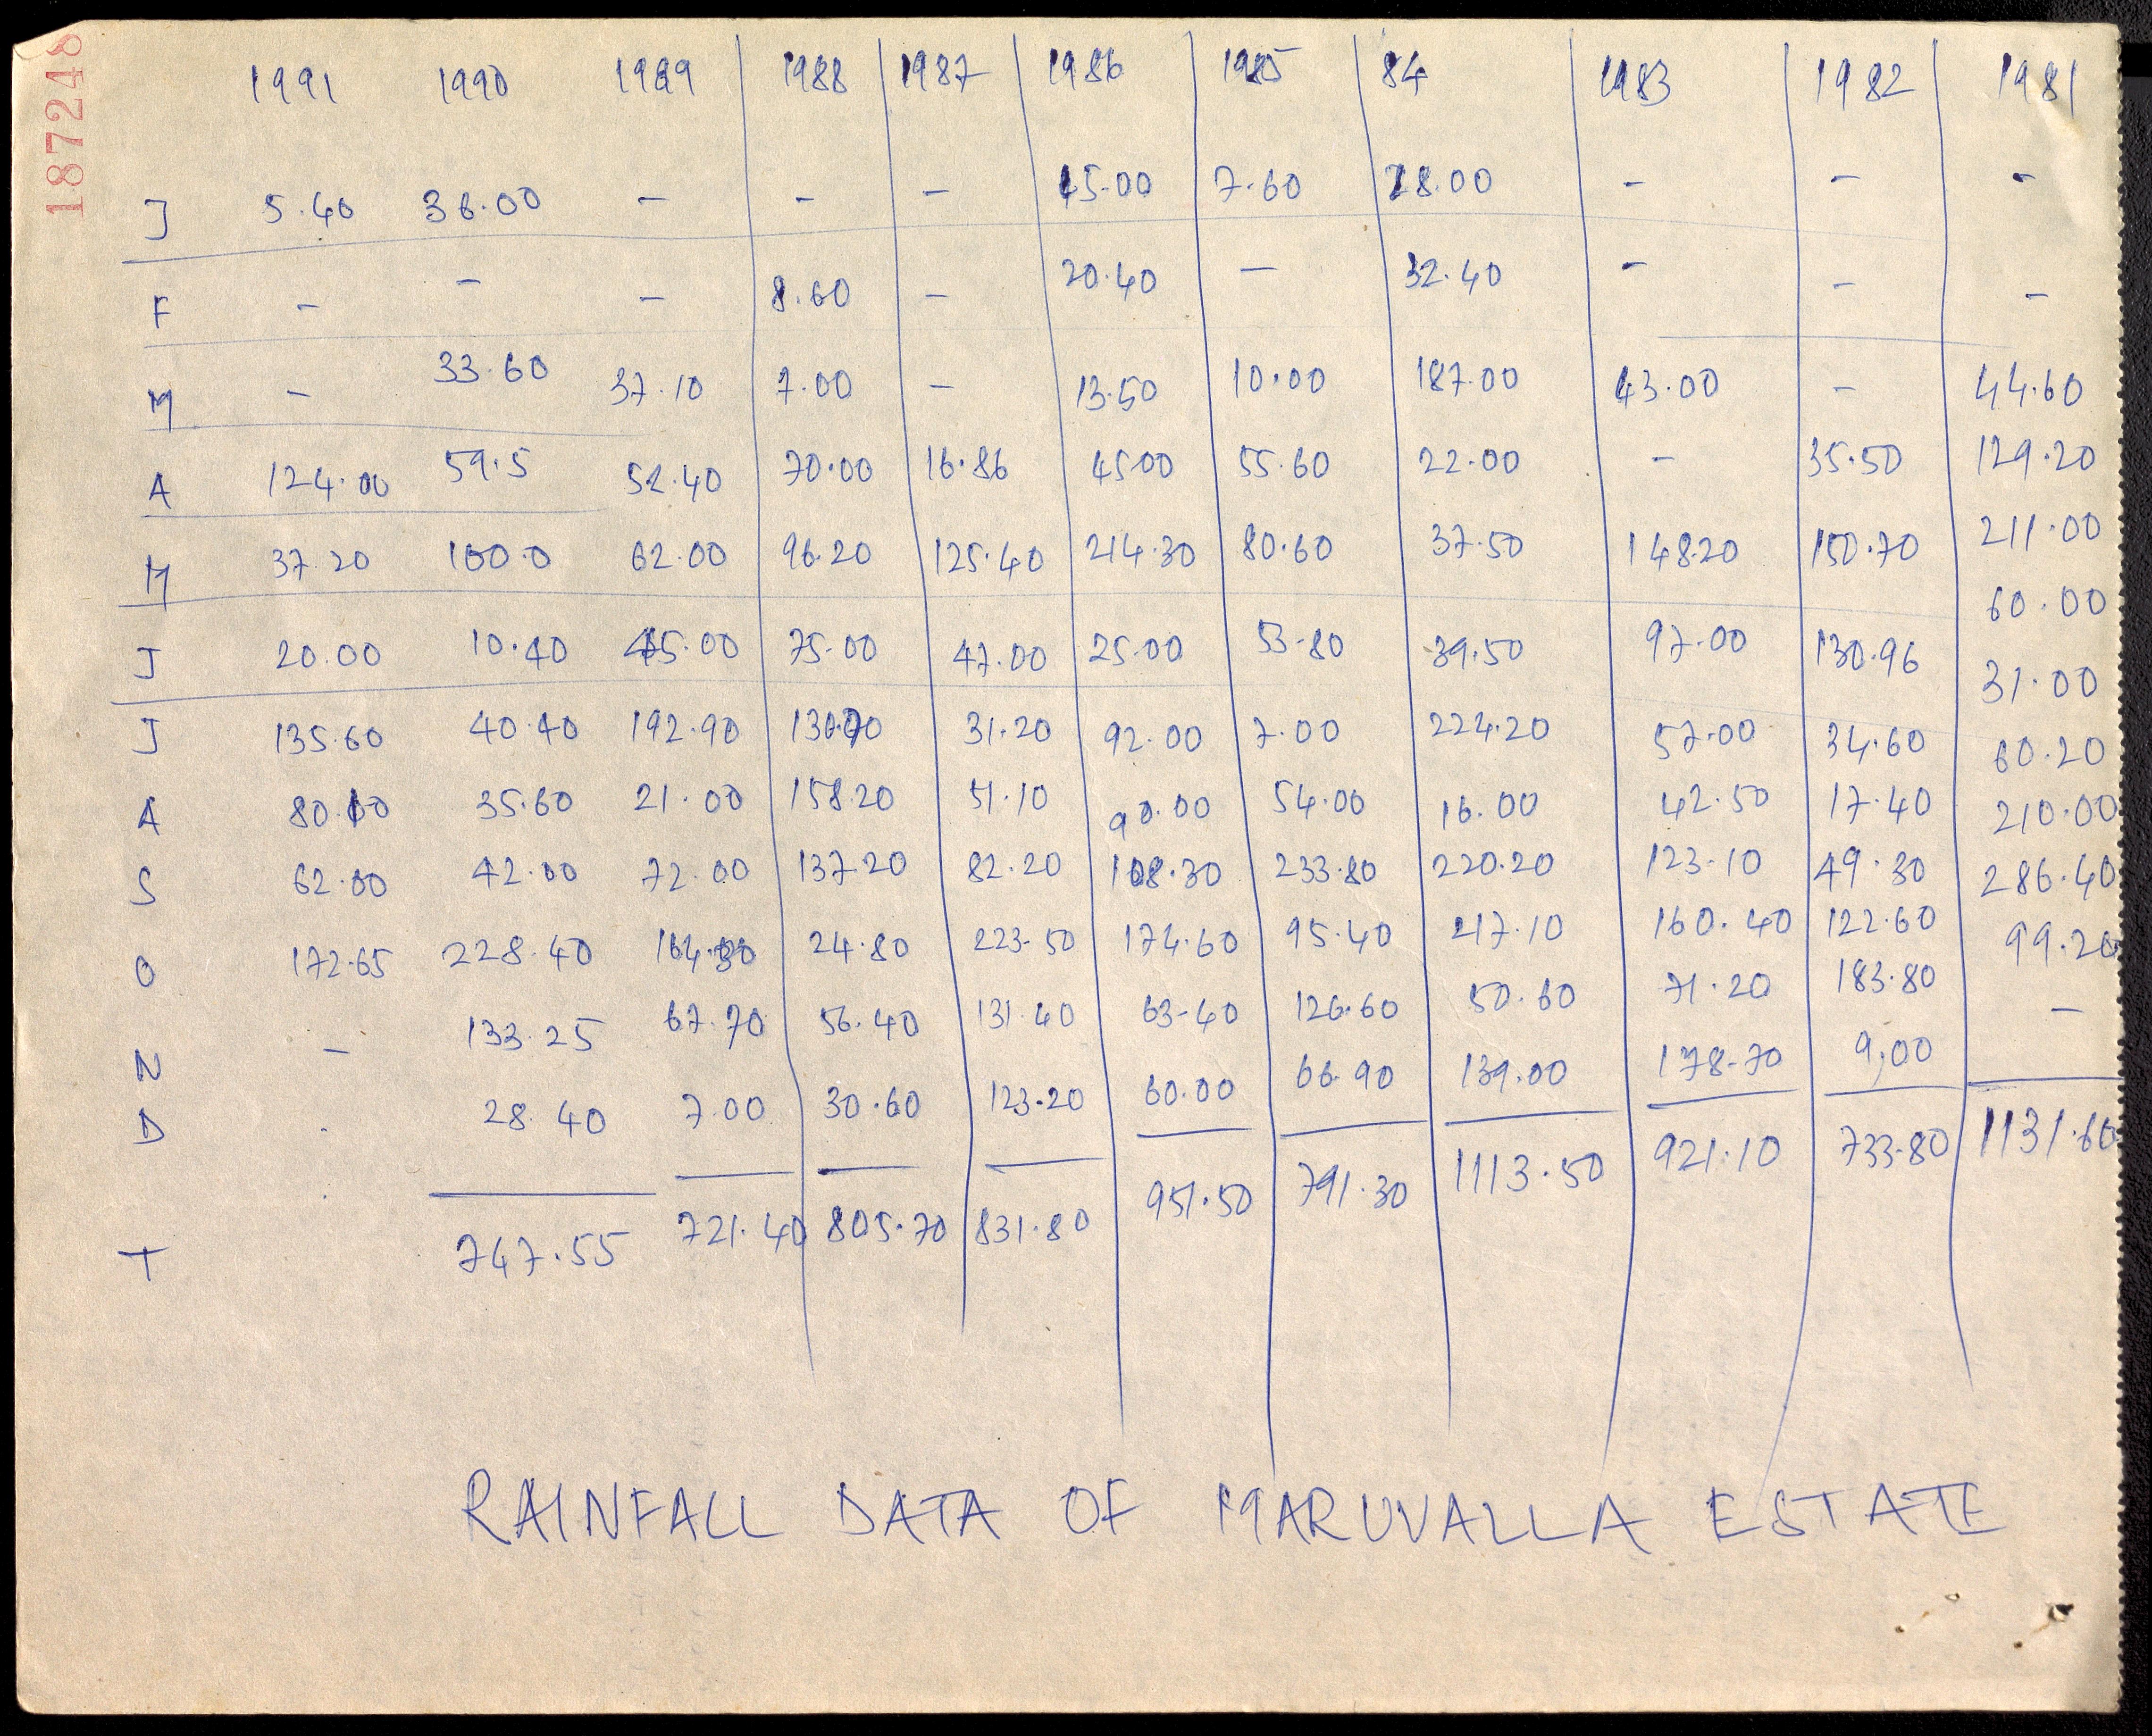 187248
1991 1990 1989 1988 1987 1986 1985 84 1983 1982 1981
J 5.40 36.00 - - - 45.00 7.60 28.00 - - -
F - - - 8.60 - 20.40 - 32.40 - - -
M - 33.60 37.10 7.00 - 13.50 10.00 187.00 43.00 - 44.60
A 124.00 59.5 52.40 70.00 16.86 45.00 55.60 22.00 - 35.50 129.20
M 37.20 100.0 62.00 96.20 125.40 214.30 80.60 37.50 148.20 150.70 211.00
J 20.00 10.40 45.00 75.00 47.00 25.00 53.80 39.50 97.00 130.96 60.00
J 135.60 40.40 192.90 92.00 31.20 7.00 224.20 57.00 34.60 31.00
A 80.00 35.60 21.00 158.20 51.10 90.00 54.00 16.00 42.50 17.40 60.20
S 62.00 42.00 72.00 137.20 82.20 108.30 233.80 220.20 123.10 49.30 210.00
O 172.65 228.40 164.30 24.80 223.50 174.60 95.40 117.10 160.40 122.60 286.40
N - 133.25 67.70 56.40 131.40 63.40 126.60 50.60 71.20 183.80 99.20
D . 28.40 7.00 30.60 123.20 60.00 66.90 139.00 178.70 9.00 -
T . 747.55 721.40 805.70 831.80 951.50 791.30 1113.50 921.10 733.80 1131.60
RAINFALL DATA OF MARUVALLA ESTATE